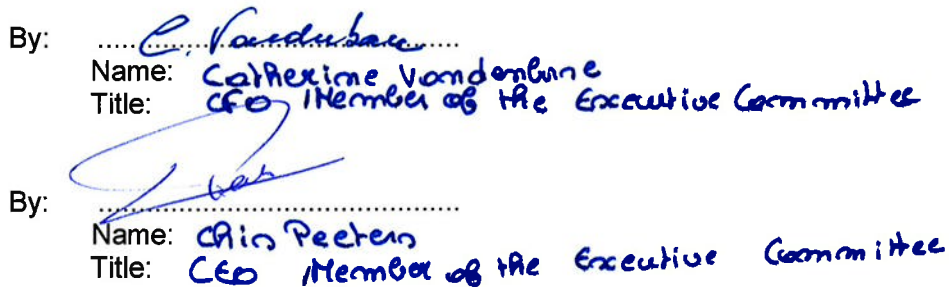 By: C. Vandenborre
Name: Catherine Vandenborre
Title: CFO, Member of the Executive Committee
By:
Name: Chris Peeters
Title: CEO, Member of the Executive Committee